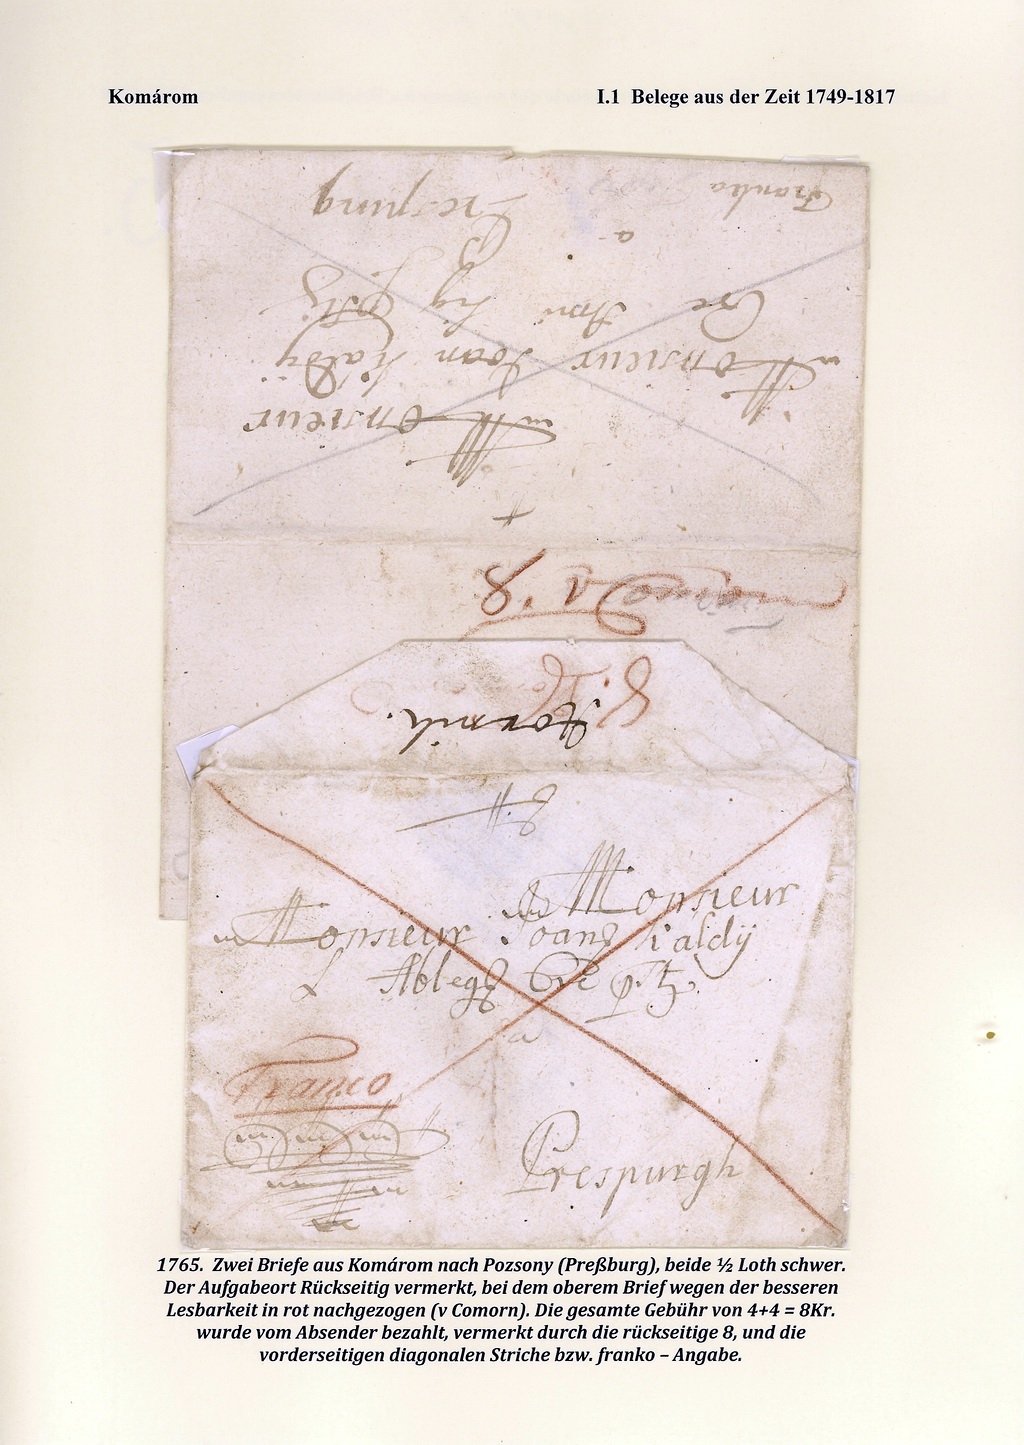 Komárom
I.1 Belege aus der Zeit 1749-1817
Monsieur
Monsieur Joan Kaldÿ
a
Franko
8
Monsieur
Monsieur Joan Kaldÿ
L Ableg
a
Franco
Prespurgh
1765. Zwei Briefe aus Komárom nach Pozsony (Preßburg), beide ½ Loth schwer.
Der Aufgabeort Rückseitig vermerkt, bei dem oberem Brief wegen der besseren
Lesbarkeit in rot nachgezogen (v Comorn). Die gesamte Gebühr von 4+4 = 8Kr.
wurde vom Absender bezahlt, vermerkt durch die rückseitige 8, und die
vorderseitigen diagonalen Striche bzw. franko – Angabe.